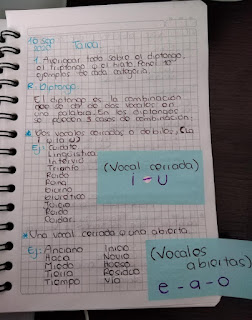 10 sep
2020
Tarea:
1. Averiguar todo sobre el diptongo,
el triptongo y el hiato. Poner 10
ejemplos de cada categoría.
R. Diptongo
El diptongo es la combinación
que se da de dos vocales en
una palabra. En los diptongos
se producen 3 casos de combinación.
* Dos vocales cerradas o débiles, (la
i y la u)
Ej: Cuidado
Lingüística
Interviú
Triunfo
Ruido
Ruina
diurno
diurético
Juicio
Ruido
Cuidar
(Vocal cerrada)
i - u
* Una vocal cerrada o una abierta.
Ej: Anciano Inicio
Hacia Novio
Miedo
Tierra Residuo
Tiempo Vio
(Vocales
abiertas)
e - a - o